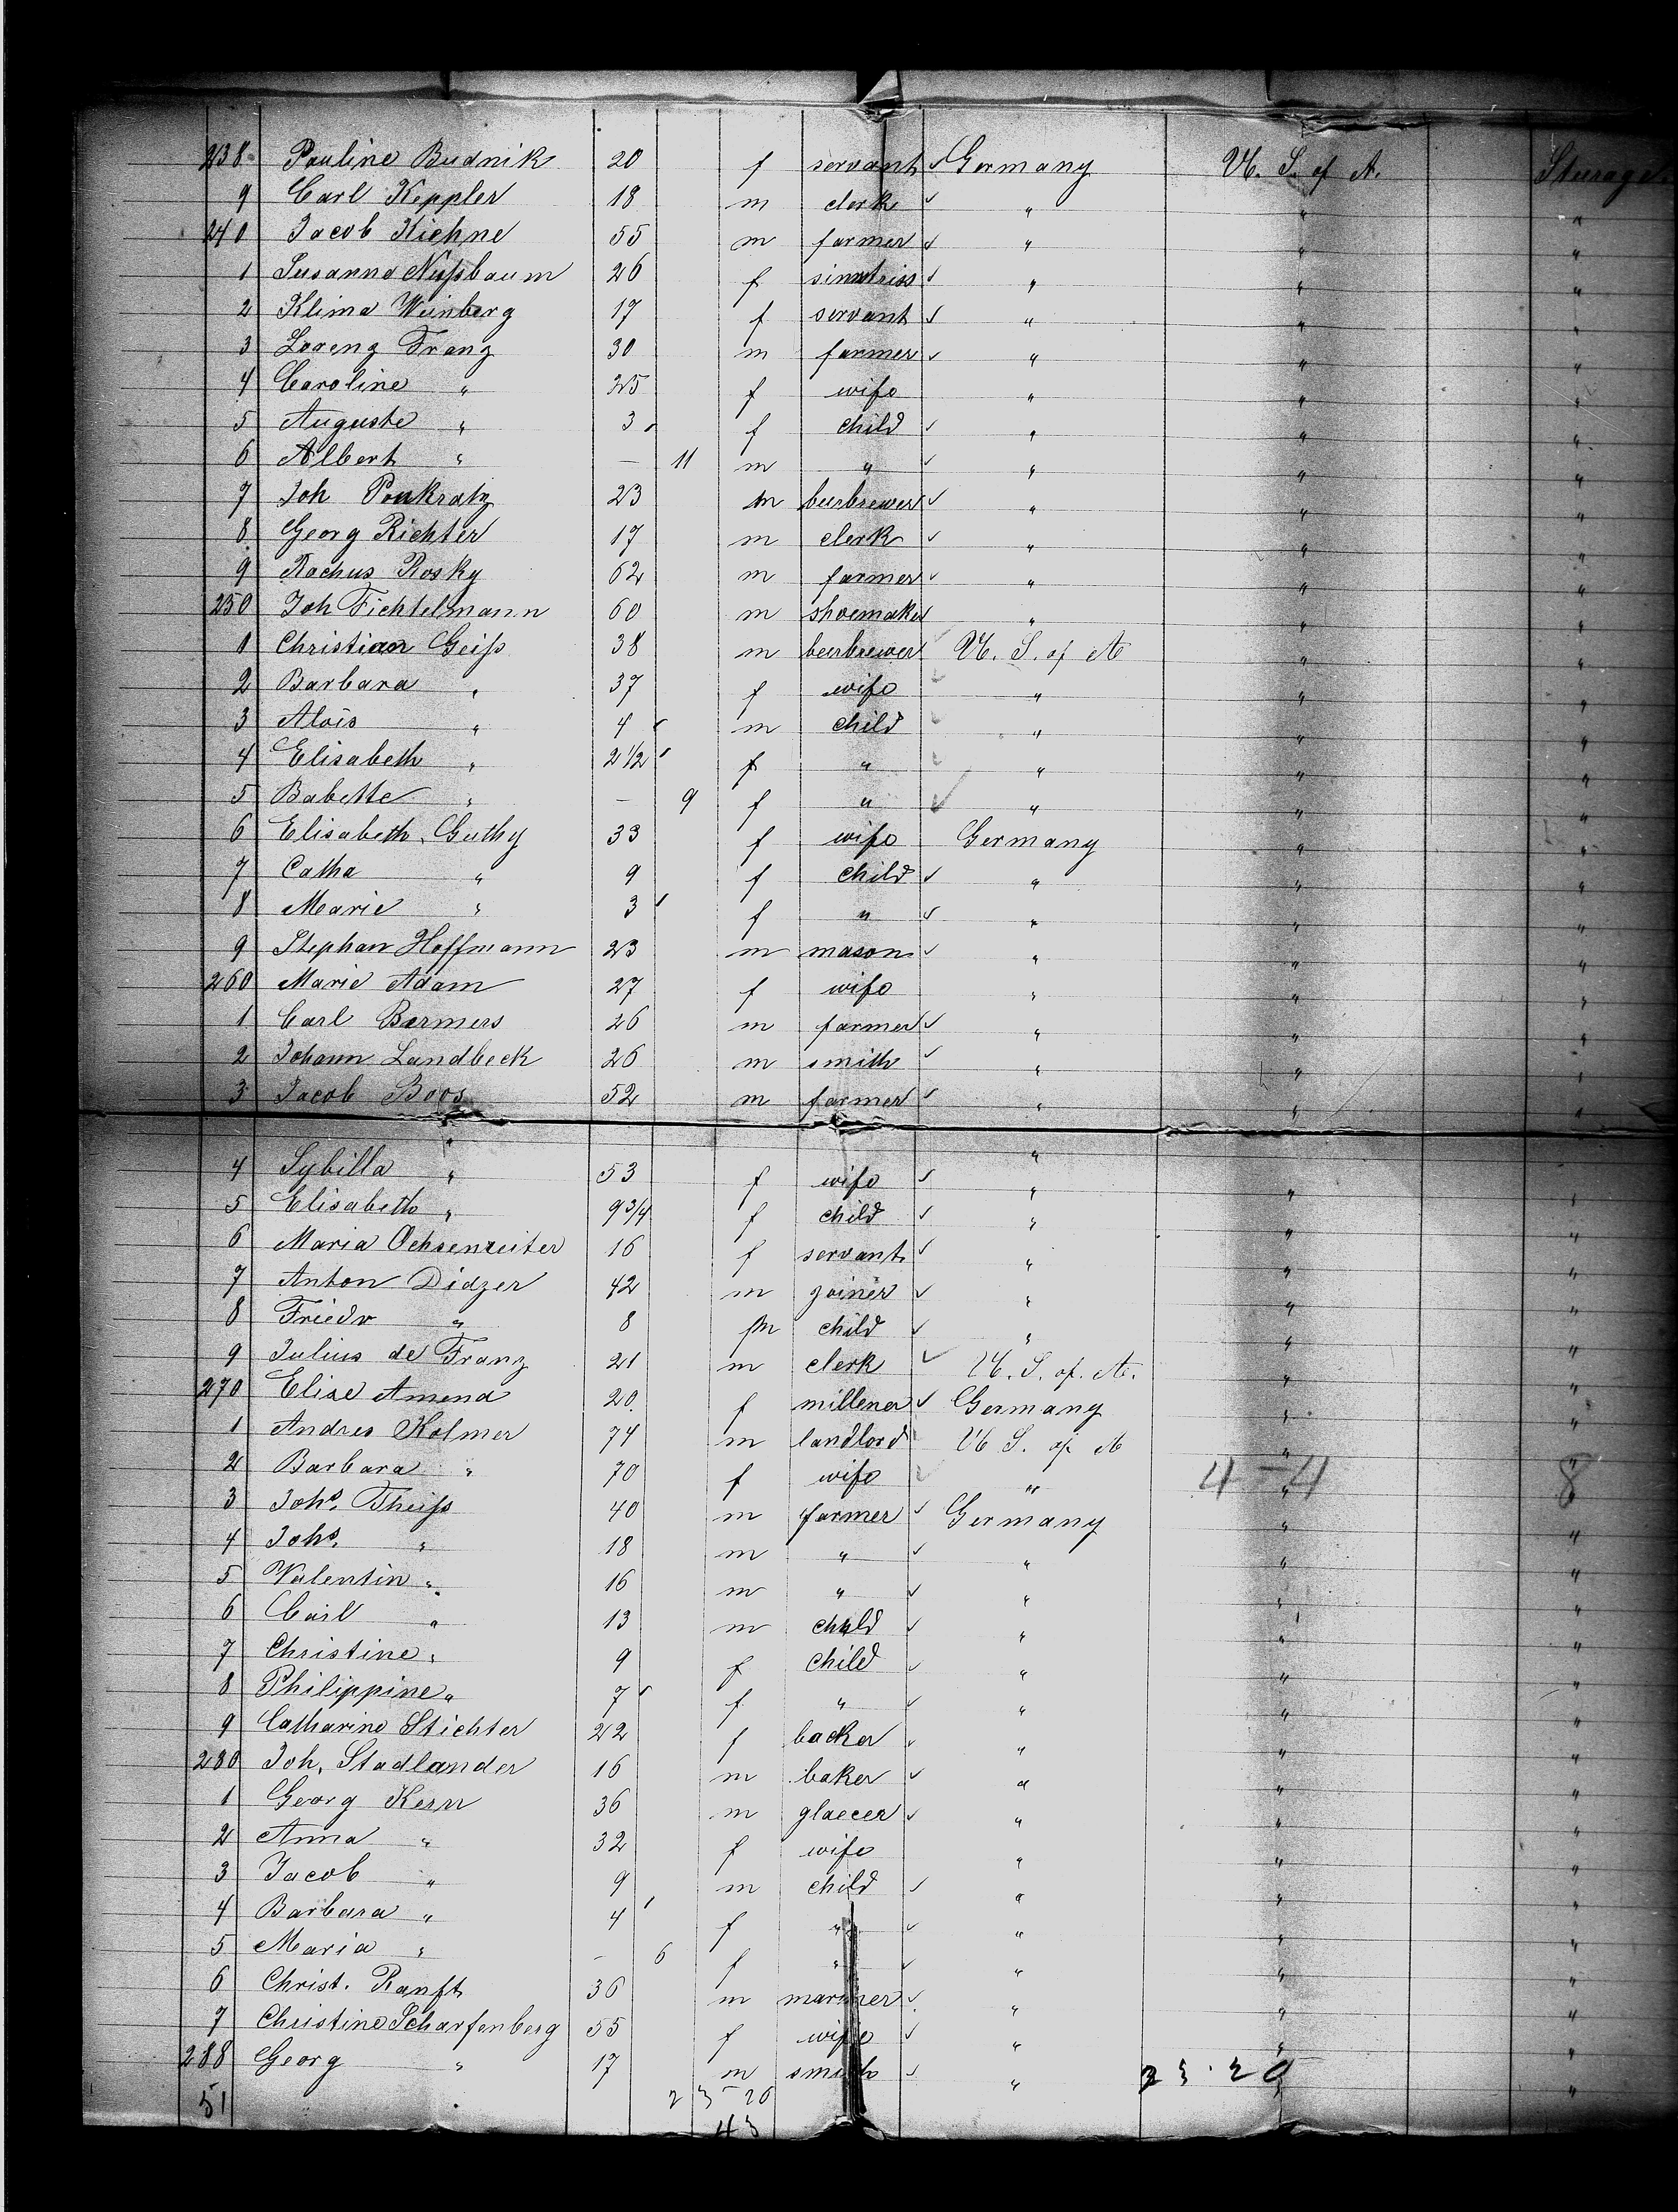 238 Pauline Budnik 20 f servant ✓ Germany U. S. of A. Steerage
9 Carl Keppler 18 m clerk ✓ " " "
240 Jacob Kiehne 55 m farmer ✓ " " "
1 Susanna Nußbaum 26 f ✓ " " "
2 Klima Weinberg 17 f servant ✓ " " "
3 Lorenz Franz 30 m farmer ✓ " " "
4 Caroline " 25 f wife " " "
5 Auguste " 3 f child ✓ " " "
6 Albert " — 11 m " ✓ " " "
7 Joh Pankratz 23 m beerbrewer ✓ " " "
8 Georg Richter 17 m clerk ✓ " " "
9 Rochus Rosky 62 m farmer ✓ " " "
250 Joh Fichtelmann 60 m shoemaker " " "
1 Christian Geiß 38 m beerbrewer ✓ U. S. of A " "
2 Barbara " 37 f wife ✓ " " "
3 Alois " 4 m child ✓ " " "
4 Elisabeth " 2 1/2 f " ✓ " " "
5 Babette " — 9 f " ✓ " " "
6 Elisabeth Guthy 33 f wife Germany " "
7 Catha " 9 f child ✓ " " "
8 Marie " 3 f " ✓ " " "
9 Stephan Hoffmann 23 m mason ✓ " " "
260 Marie Adam 27 f wife " " "
1 Carl Bermers 26 m farmer ✓ " " "
2 Johann Landbeck 26 m smith ✓ " " "
3 Jacob Boos 52 m farmer ✓ " " "
4 Sybilla " 53 f wife ✓ " " "
5 Elisabeth " 9 3/4 f child ✓ " " "
6 Maria Ochsenreiter 16 f servant ✓ " " "
7 Anton Didzer 42 m joiner ✓ " " "
8 Friedr " 8 m child ✓ " " "
9 Julius de Franz 21 m clerk ✓ U. S. of. A. " "
270 Elise Amend 20 f millener ✓ Germany " "
1 Andres Kolmer 74 m landlord U S. of A " "
2 Barbara " 70 f wife ✓ " 4-4 " 8
3 Johs. Theiß 40 m farmer ✓ Germany " "
4 Johs. " 18 m " ✓ " " "
5 Valentin " 16 m " ✓ " " "
6 Carl " 13 m child ✓ " " "
7 Christine " 9 f child ✓ " " "
8 Philippine " 7 f " ✓ " " "
9 Catharine Stichter 22 f backer ✓ " " "
280 Joh. Stadlander 16 m baker ✓ " " "
1 Georg Kern 36 m glaecer ✓ " " "
2 Anna " 32 f wife " " "
3 Jacob " 9 m child ✓ " " "
4 Barbara " 4 f " ✓ " " "
5 Maria " — 6 f " ✓ " " "
6 Christ. Ranft 36 m mariner ✓ " " "
7 Christine Scharfenberg 55 f wife ✓ " " "
288 Georg " 17 m smith ✓ " 23·20 " "
51 23-20
43